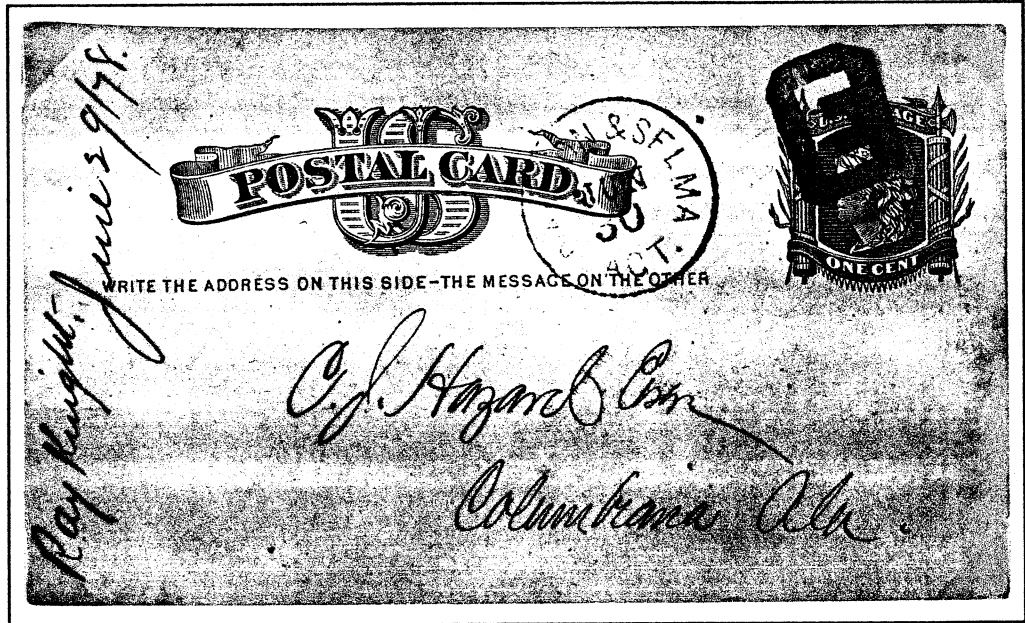 Ray Knight. June 9/78.
US
POSTAL CARD.
N & SELMA
AGT.
U.S. POSTAGE
ONE CENT
WRITE THE ADDRESS ON THIS SIDE-THE MESSAGE ON THE OTHER
C. J. Hazard Esqr
Columbiana Ala.